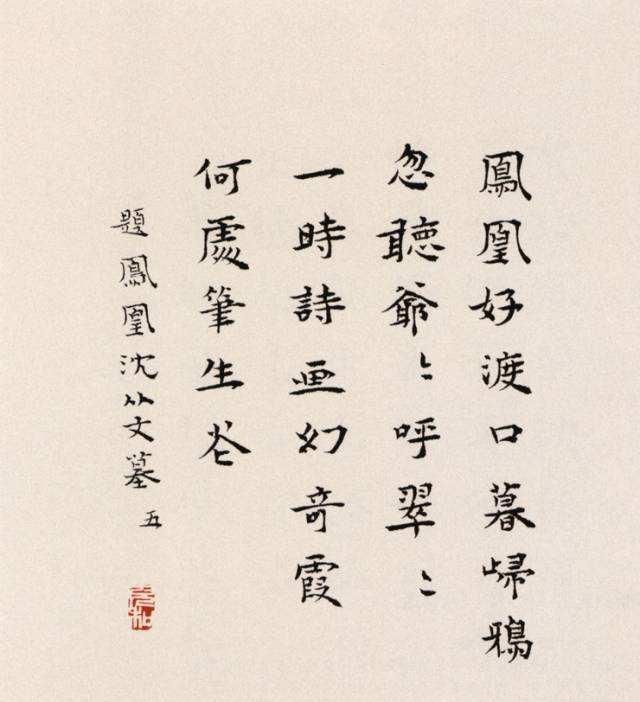 鳳凰好渡口暮歸鴉
忽聽爺〻呼翠〻
一時詩画幻奇霞
何處筆生花
題鳳凰沈从文墓 五